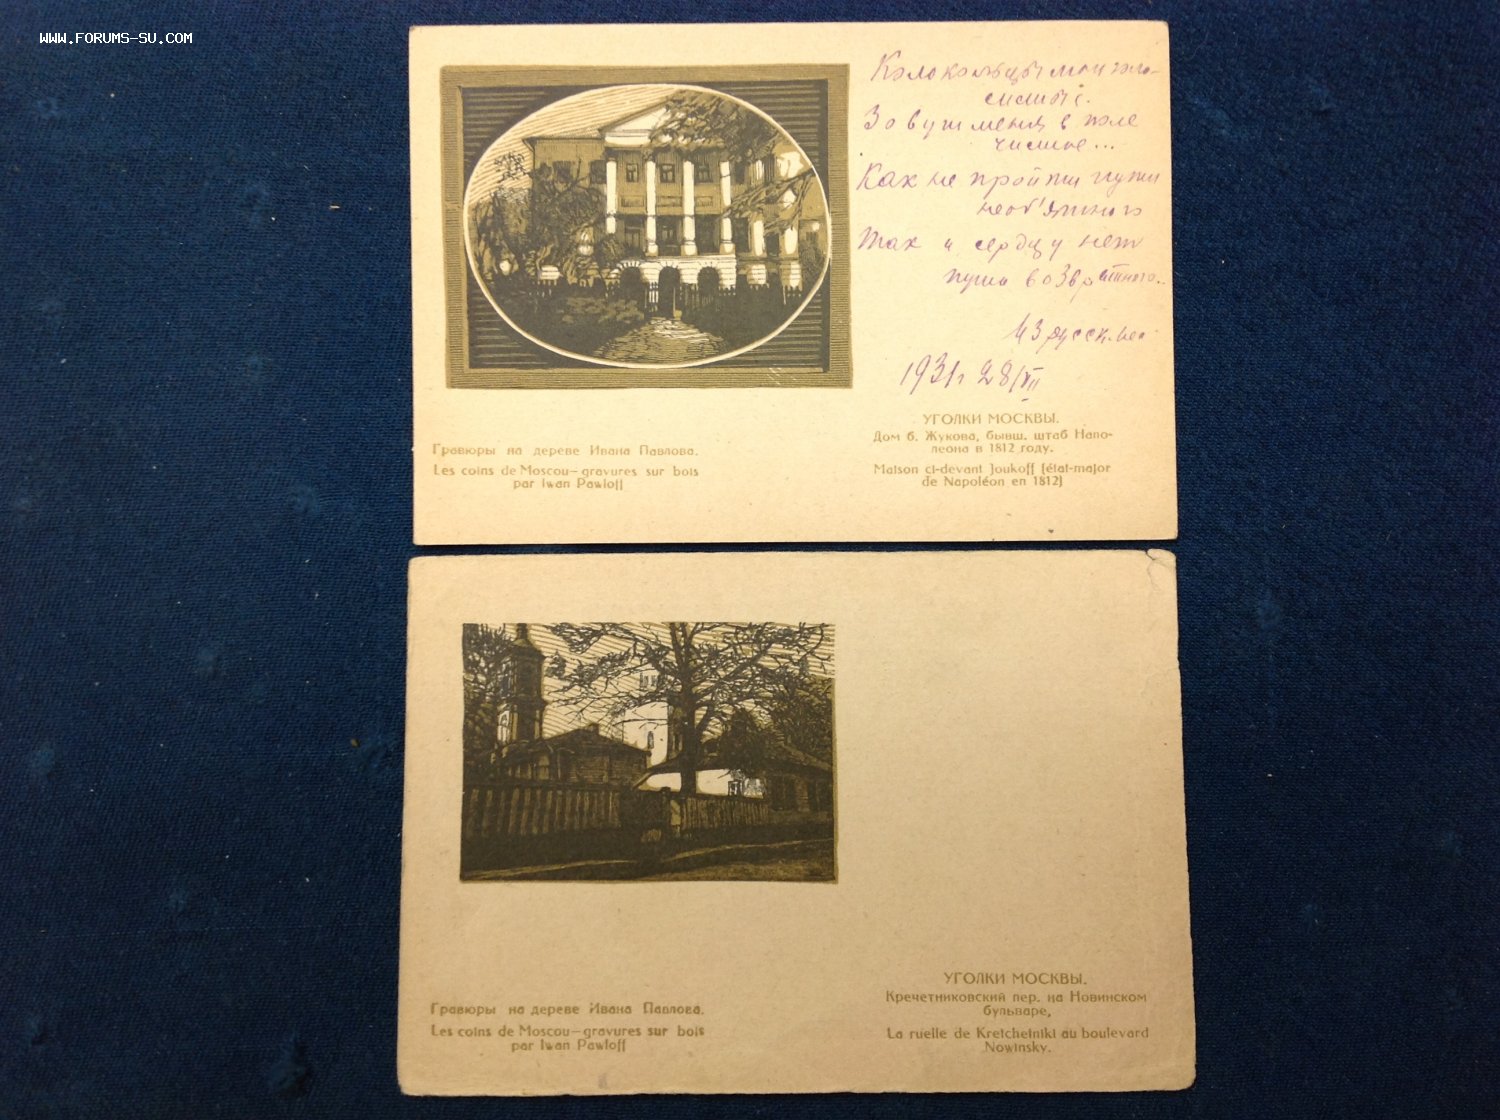 WWW.FORUMS-SU.COM
Колокольцы мои голо-
систые
Зовут меня в поле
чистое...
Как не пройти пути
необ'ятного
Так и сердцу нет
пути возвратного..
Из русск.
1931г 28/VII
Гравюры на дереве Ивана Павлова.
Les coins de Moscou—gravures sur bois
par Iwan Pawloff
УГОЛКИ МОСКВЫ.
Дом б. Жукова, бывш. штаб Напо-
леона в 1812 году.
Maison ci-devant Joukoff (état-major
de Napoléon en 1812)
Гравюры на дереве Ивана Павлова.
Les coins de Moscou—gravures sur bois
par Iwan Pawloff
УГОЛКИ МОСКВЫ.
Кречетниковский пер. на Новинском
бульваре,
La ruelle de Kretchetniki au boulevard
Nowinsky.